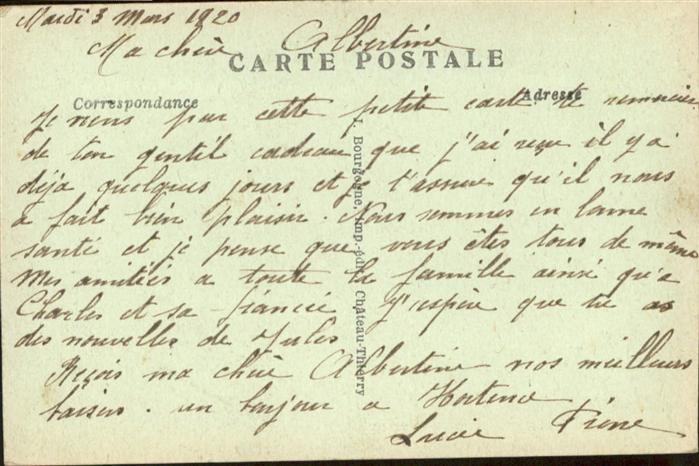 Mardi 3 Mars 1920
Ma chère Albertine
CARTE POSTALE
Correspondance
Adresse
Je viens par cette petite carte te remercier
de ton gentil cadeau que j'ai reçu il y a
déja quelques jours et je t'assure qu'il nous
a fait bien plaisir. Nous sommes en bonne
santé et je pense que vous êtes tous de même
Mes amitiés a toute la famille ainsi qu'a
Charles et sa fiancée J'espère que tu as
des nouvelles de Jules
Reçois ma chère Albertine nos meilleurs
baisers. un bonjour a Hortence
J. Bourgogne, imp.-édit., Château-Thierry